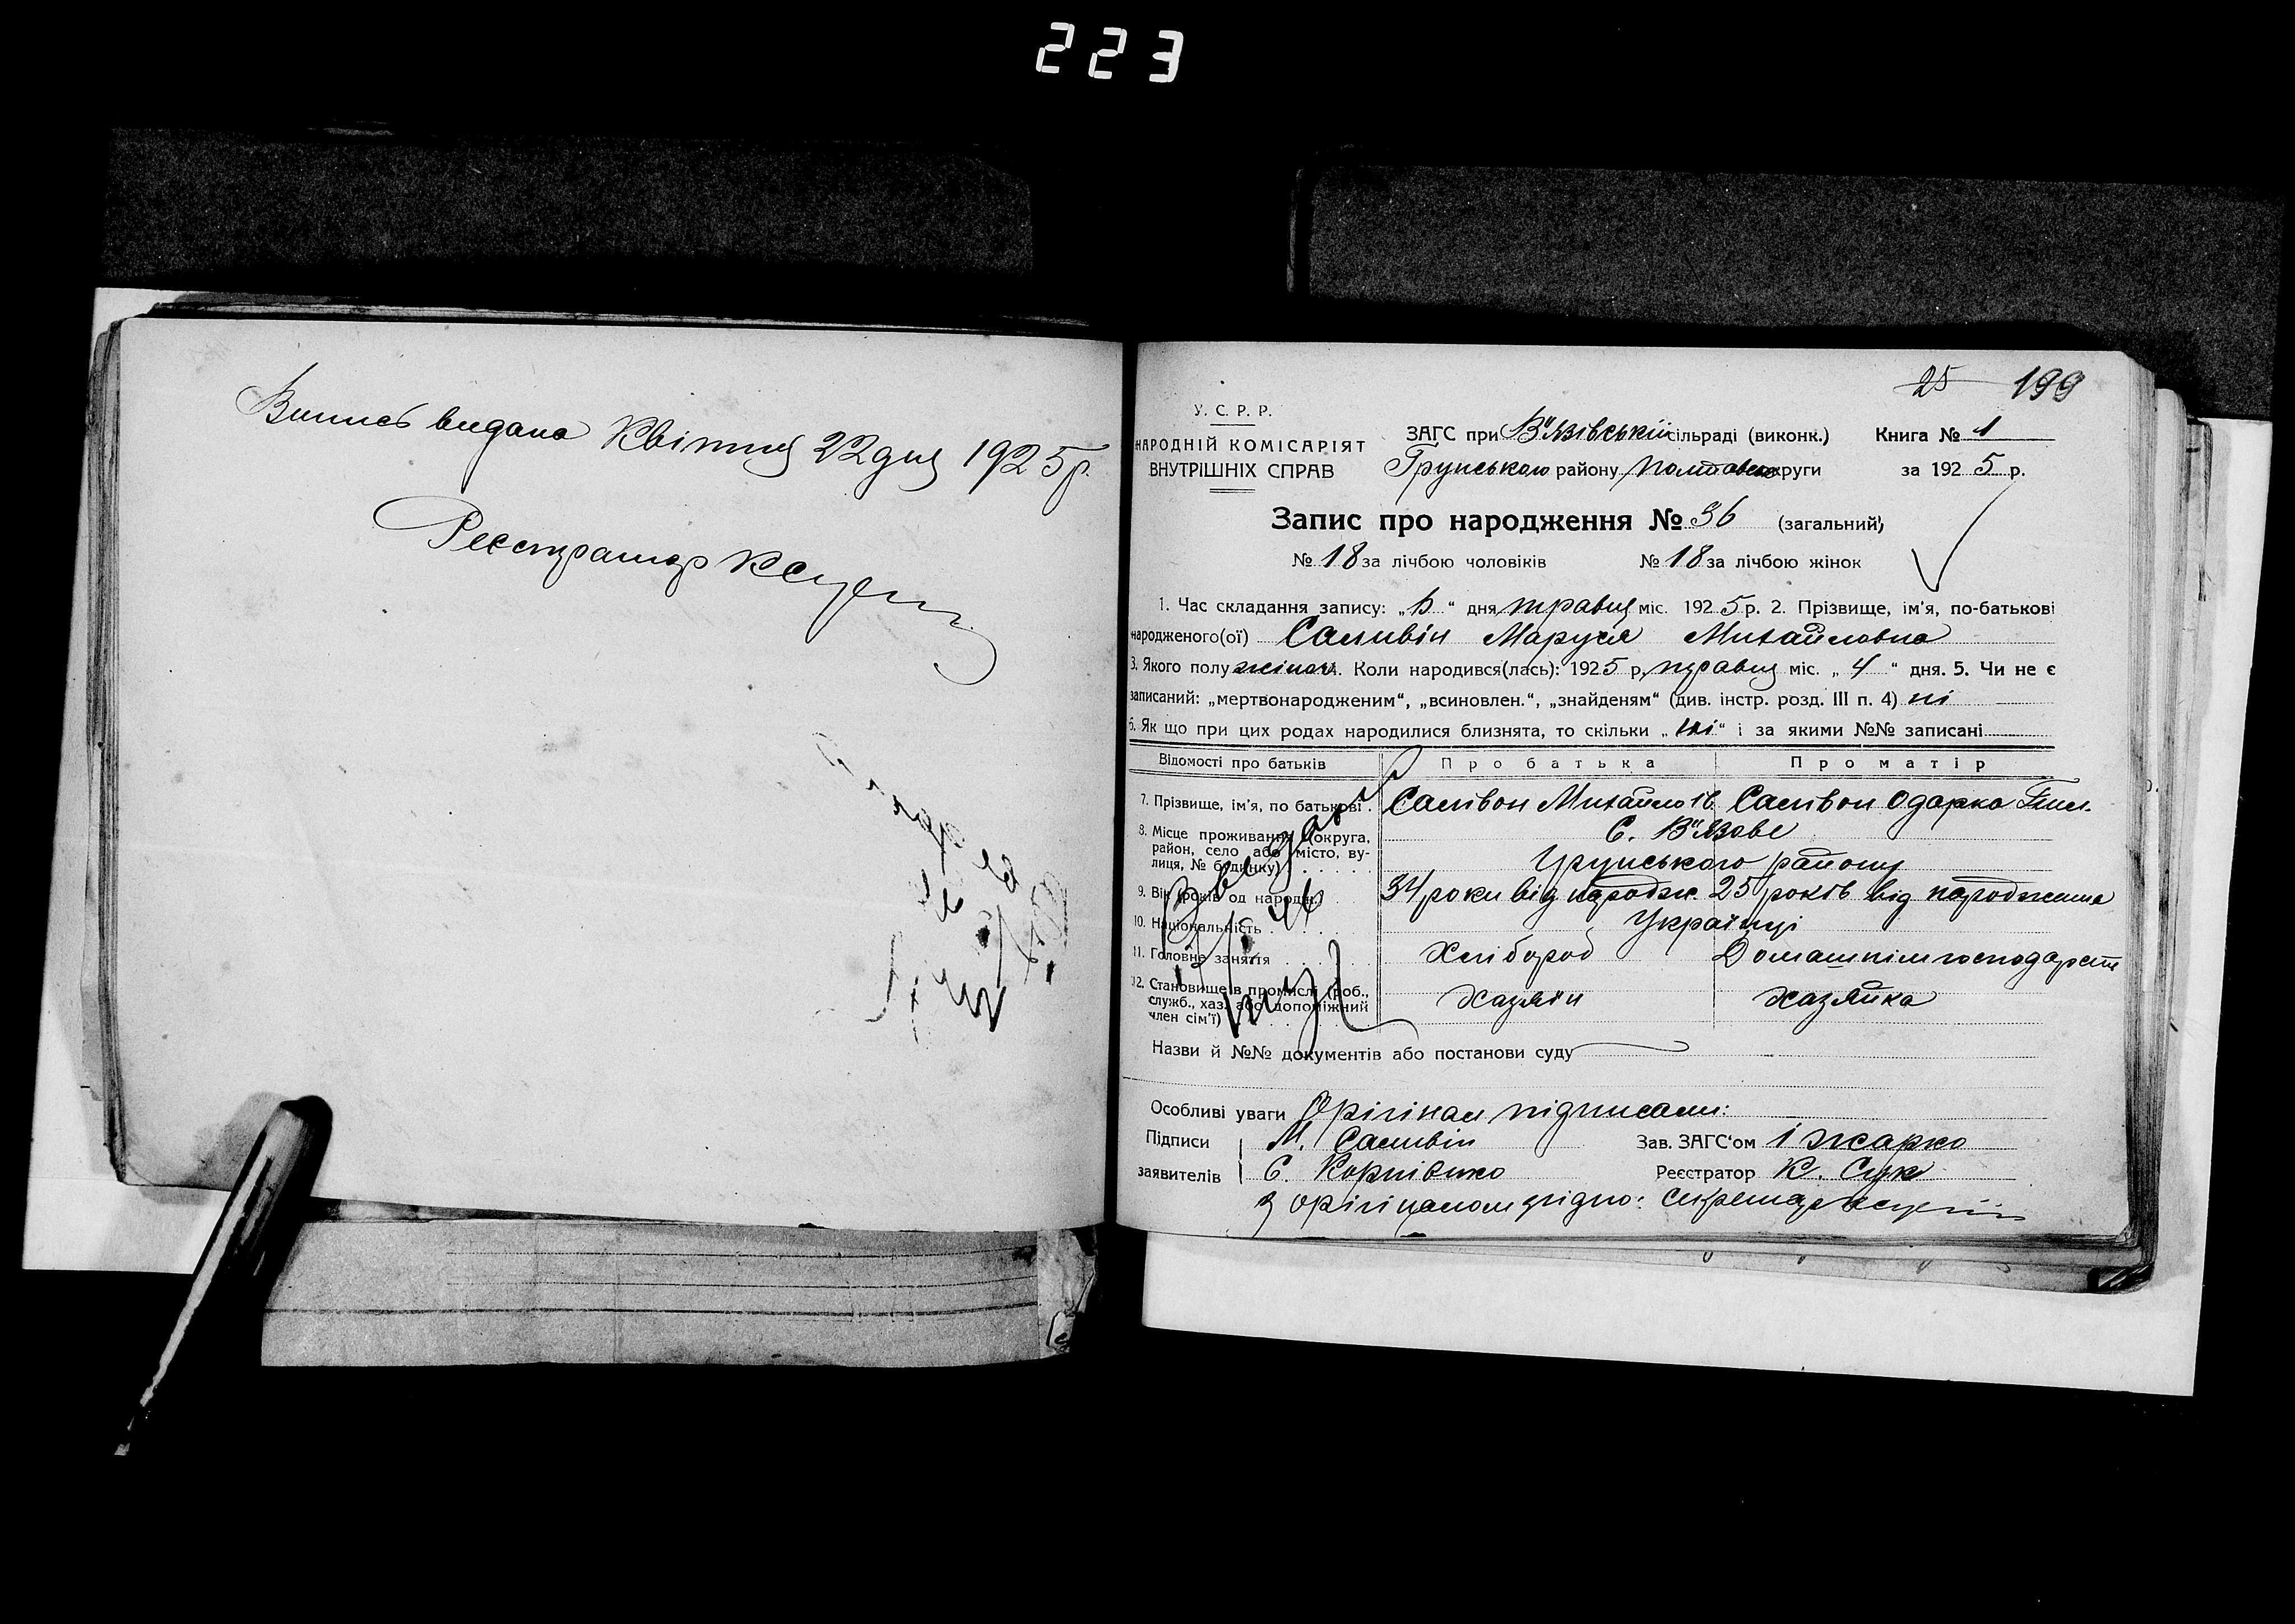 223
Випись видана Квітня 22 дня 1925 р.
Реєстратор КСук
25 199
У. С. Р. Р.
НАРОДНІЙ КОМІСАРІЯТ
ВНУТРІШНІХ СПРАВ
ЗАГС при В"язівській сільраді (виконк.) Книга № 1
Грунського району Полтавсько округи за 1925 р.
Запис про народження № 36 (загальний)
№ 18 за лічбою чоловіків № 18 за лічбою жінок
1. Час складання запису: „6“ дня травня міс. 1925 р. 2. Прізвище, ім'я, по-батькові
народженого(ої) Саливін Маруся Михайловна
3. Якого полу жіноч. Коли народився(лась): 1925 р. травня міс. „4“ дня. 5. Чи не є
записаний: „мертвонародженим“, „всиновлен.“, „знайденям“ (див. інстр. розд. III п. 4) ні
6. Як що при цих родах народилися близнята, то скільки „ні“ і за якими №№ записані
Відомості про батьків Про батька Про матір
7. Прізвище, ім'я, по батькові Салівон Михайло Ів. Салівон Одарка
8. Місце проживання (округа, район, село або місто, вулиця, № будинку) С. В"язове
Грунського району
9. Вік (років од народж.) 34 роки від народж. 25 років від народження
10. Національність Українці
11. Головне заняття Хлібороб Домашнім господарств
12. Становище в промислі (роб., служб., хаз. або допоміжний член сім'ї) Хазяїн Хазяйка
Назви й №№ документів або постанови суду
Особливі уваги Орігінал підписали:
Підписи М. Саливін Зав. ЗАГС'ом І Жарко
заявителів Є. Корнієнко Реєстратор К. Сук
З орігіналом згідно: Секретарь КСук